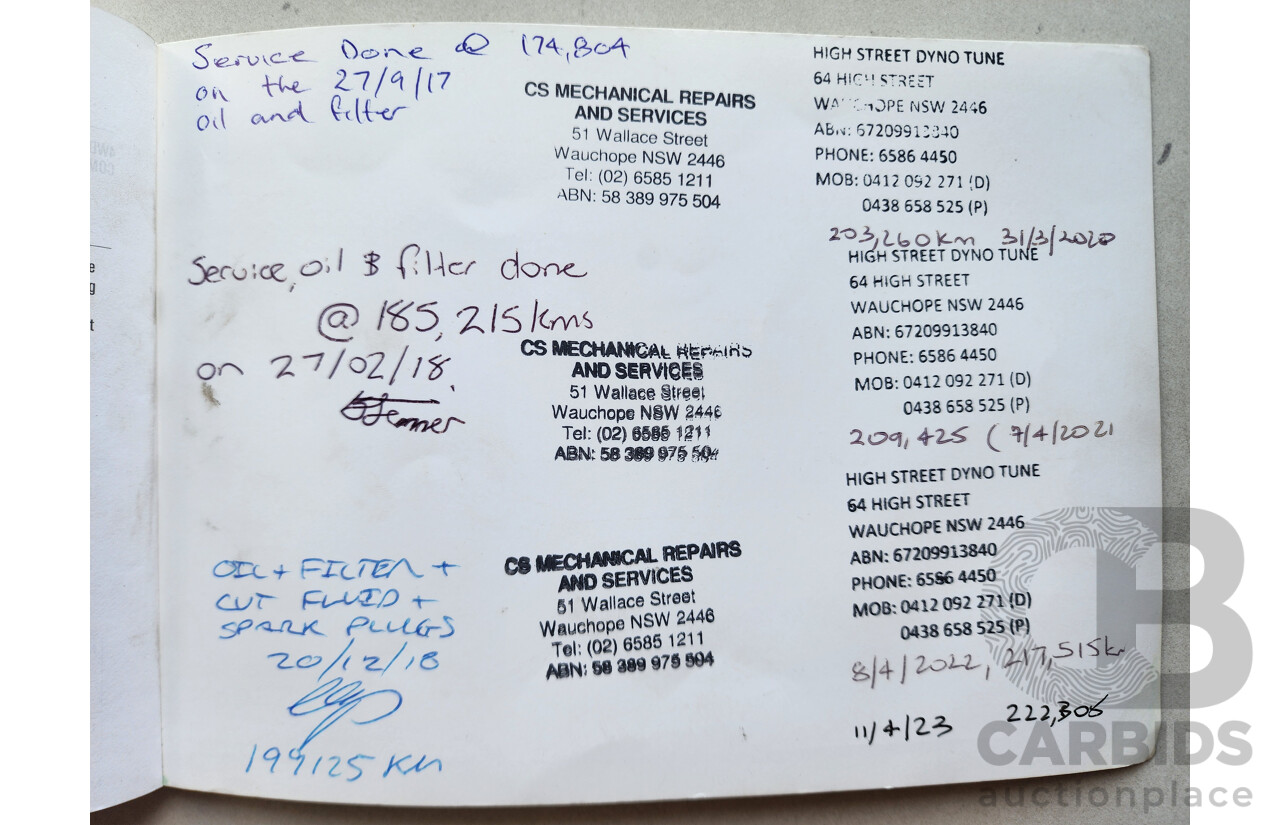 Service Done @ 174,804
on the 27/9/17
oil and filter
CS MECHANICAL REPAIRS
AND SERVICES
51 Wallace Street
Wauchope NSW 2446
Tel: (02) 6585 1211
ABN: 58 389 975 504
Service, oil & filter done
@ 185,215 kms
on 27/02/18.
CS MECHANICAL REPAIRS
AND SERVICES
51 Wallace Street
Wauchope NSW 2446
Tel: (02) 6585 1211
ABN: 58 389 975 504
OIL + FILTER +
CUT FLUID +
SPARK PLUGS
20/12/18
199125 KM
CS MECHANICAL REPAIRS
AND SERVICES
51 Wallace Street
Wauchope NSW 2446
Tel: (02) 6585 1211
ABN: 58 389 975 504
HIGH STREET DYNO TUNE
64 HIGH STREET
WAUCHOPE NSW 2446
ABN: 67209913840
PHONE: 6586 4450
MOB: 0412 092 271 (D)
0438 658 525 (P)
203,260km 31/3/2020
HIGH STREET DYNO TUNE
64 HIGH STREET
WAUCHOPE NSW 2446
ABN: 67209913840
PHONE: 6586 4450
MOB: 0412 092 271 (D)
0438 658 525 (P)
209,425 ( 7/4/2021
HIGH STREET DYNO TUNE
64 HIGH STREET
WAUCHOPE NSW 2446
ABN: 67209913840
PHONE: 6586 4450
MOB: 0412 092 271 (D)
0438 658 525 (P)
8/4/2022, 217,515k
11/4/23 222,306
CARBIDS
auctionplace